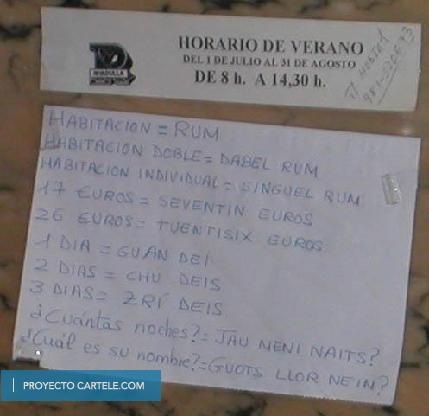 HORARIO DE VERANO
DEL 1 DE JULIO AL 31 DE AGOSTO
DE 8 h. A 14,30 h.
HABITACION = RUM
HABITACION DOBLE = DABEL RUM
HABITACION INDIVIDUAL = SINGUEL RUM
17 EUROS = SEVENTIN EUROS
26 EUROS = TUENTISIX EUROS
1 DIA = GUAN DEI
2 DIAS = CHU DEIS
3 DIAS = ZRÍ DEIS
¿Cuántas noches? = JAU MENI NAITS?
¿Cuál es su nombre? = GUOTS LLOR NEIM?
PROYECTO CARTELE.COM